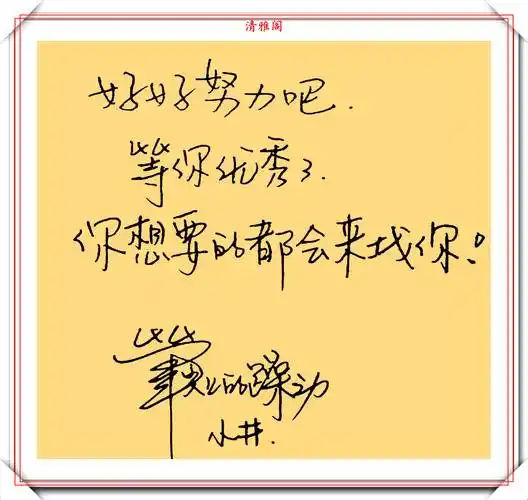 清雅阁
好好努力吧.
等你优秀了.
你想要的都会来找你!
笔尖上的躁动
小井.